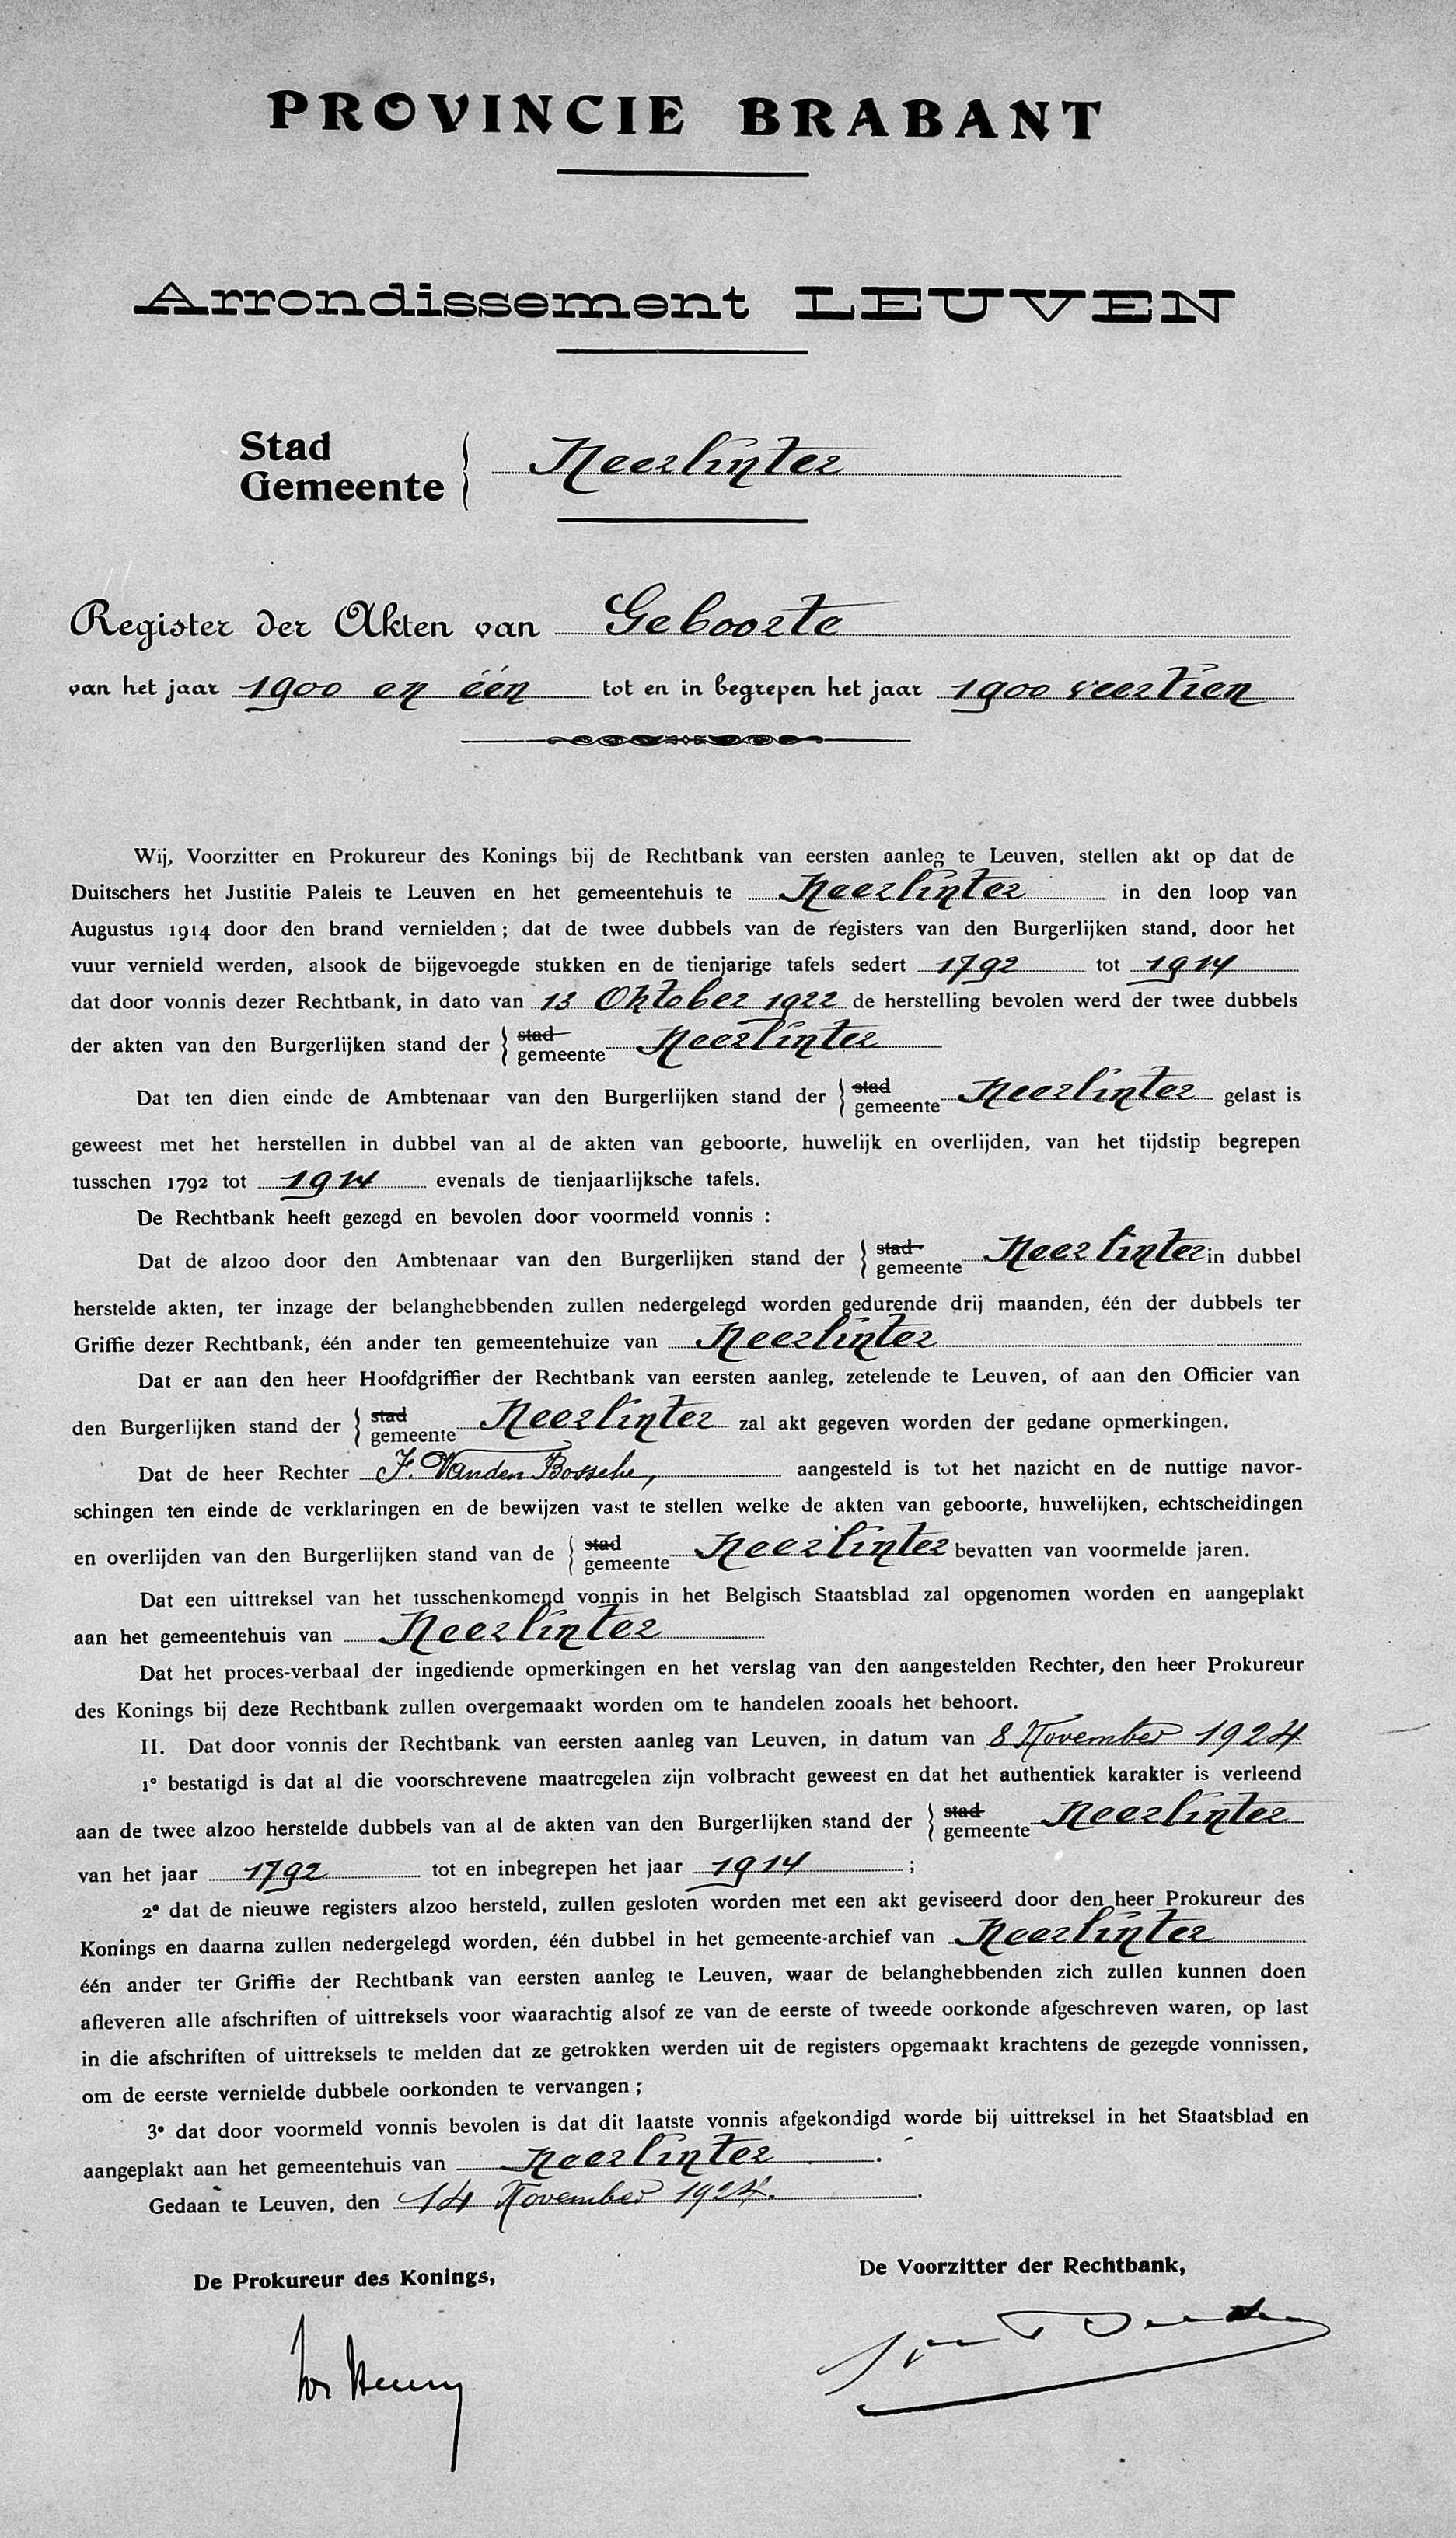 PROVINCIE BRABANT
Arrondissement LEUVEN
Stad
Gemeente } Neerlinter
Register der Akten van Geboorte
van het jaar 1900 en één tot en in begrepen het jaar 1900 veertien
Wij, Voorzitter en Prokureur des Konings bij de Rechtbank van eersten aanleg te Leuven, stellen akt op dat de
Duitschers het Justitie Paleis te Leuven en het gemeentehuis te Neerlinter in den loop van
Augustus 1914 door den brand vernielden ; dat de twee dubbels van de registers van den Burgerlijken stand, door het
vuur vernield werden, alsook de bijgevoegde stukken en de tienjarige tafels sedert 1792 tot 1914
dat door vonnis dezer Rechtbank, in dato van 13 Oktober 1922 de herstelling bevolen werd der twee dubbels
der akten van den Burgerlijken stand der } stad gemeente Neerlinter
Dat ten dien einde de Ambtenaar van den Burgerlijken stand der } stad gemeente Neerlinter gelast is
geweest met het herstellen in dubbel van al de akten van geboorte, huwelijk en overlijden, van het tijdstip begrepen
tusschen 1792 tot 1914 evenals de tienjaarlijksche tafels.
De Rechtbank heeft gezegd en bevolen door voormeld vonnis :
Dat de alzoo door den Ambtenaar van den Burgerlijken stand der } stad gemeente Neerlinter in dubbel
herstelde akten, ter inzage der belanghebbenden zullen nedergelegd worden gedurende drij maanden, één der dubbels ter
Griffie dezer Rechtbank, één ander ten gemeentehuize van Neerlinter
Dat er aan den heer Hoofdgriffier der Rechtbank van eersten aanleg, zetelende te Leuven, of aan den Officier van
den Burgerlijken stand der } stad gemeente Neerlinter zal akt gegeven worden der gedane opmerkingen.
Dat de heer Rechter F. Vanden Bossche, aangesteld is tot het nazicht en de nuttige navor-
schingen ten einde de verklaringen en de bewijzen vast te stellen welke de akten van geboorte, huwelijken, echtscheidingen
en overlijden van den Burgerlijken stand van de } stad gemeente Neerlinter bevatten van voormelde jaren.
Dat een uittreksel van het tusschenkomend vonnis in het Belgisch Staatsblad zal opgenomen worden en aangeplakt
aan het gemeentehuis van Neerlinter
Dat het proces-verbaal der ingediende opmerkingen en het verslag van den aangestelden Rechter, den heer Prokureur
des Konings bij deze Rechtbank zullen overgemaakt worden om te handelen zooals het behoort.
II. Dat door vonnis der Rechtbank van eersten aanleg van Leuven, in datum van 8 November 1924
1° bestatigd is dat al die voorschrevene maatregelen zijn volbracht geweest en dat het authentiek karakter is verleend
aan de twee alzoo herstelde dubbels van al de akten van den Burgerlijken stand der } stad gemeente Neerlinter
van het jaar 1792 tot en inbegrepen het jaar 1914 ;
2° dat de nieuwe registers alzoo hersteld, zullen gesloten worden met een akt geviseerd door den heer Prokureur des
Konings en daarna zullen nedergelegd worden, één dubbel in het gemeente-archief van Neerlinter
één ander ter Griffie der Rechtbank van eersten aanleg te Leuven, waar de belanghebbenden zich zullen kunnen doen
afleveren alle afschriften of uittreksels voor waarachtig alsof ze van de eerste of tweede oorkonde afgeschreven waren, op last
in die afschriften of uittreksels te melden dat ze getrokken werden uit de registers opgemaakt krachtens de gezegde vonnissen,
om de eerste vernielde dubbele oorkonden te vervangen ;
3° dat door voormeld vonnis bevolen is dat dit laatste vonnis afgekondigd worde bij uittreksel in het Staatsblad en
aangeplakt aan het gemeentehuis van Neerlinter.
Gedaan te Leuven, den 14 November 1924.
De Prokureur des Konings,
De Voorzitter der Rechtbank,